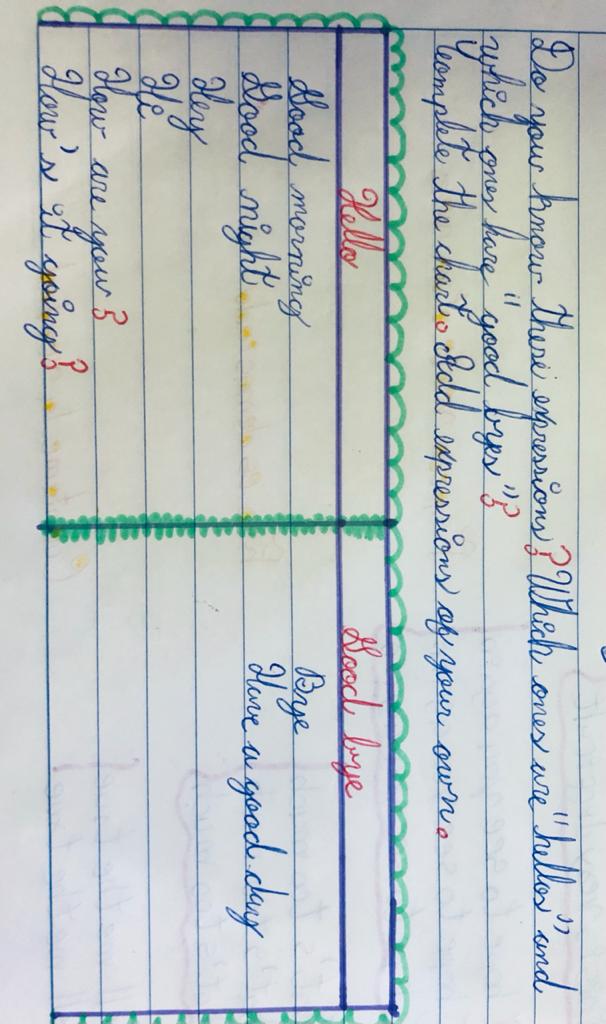 Do you know these expressions? Which ones are "hellos" and
which ones have "good byes"?
complete the chart. Add expressions of your own.
Hello
Good bye
Good morning
Bye
Good night
Have a good day
Hey
Hi
How are you?
How's it going?